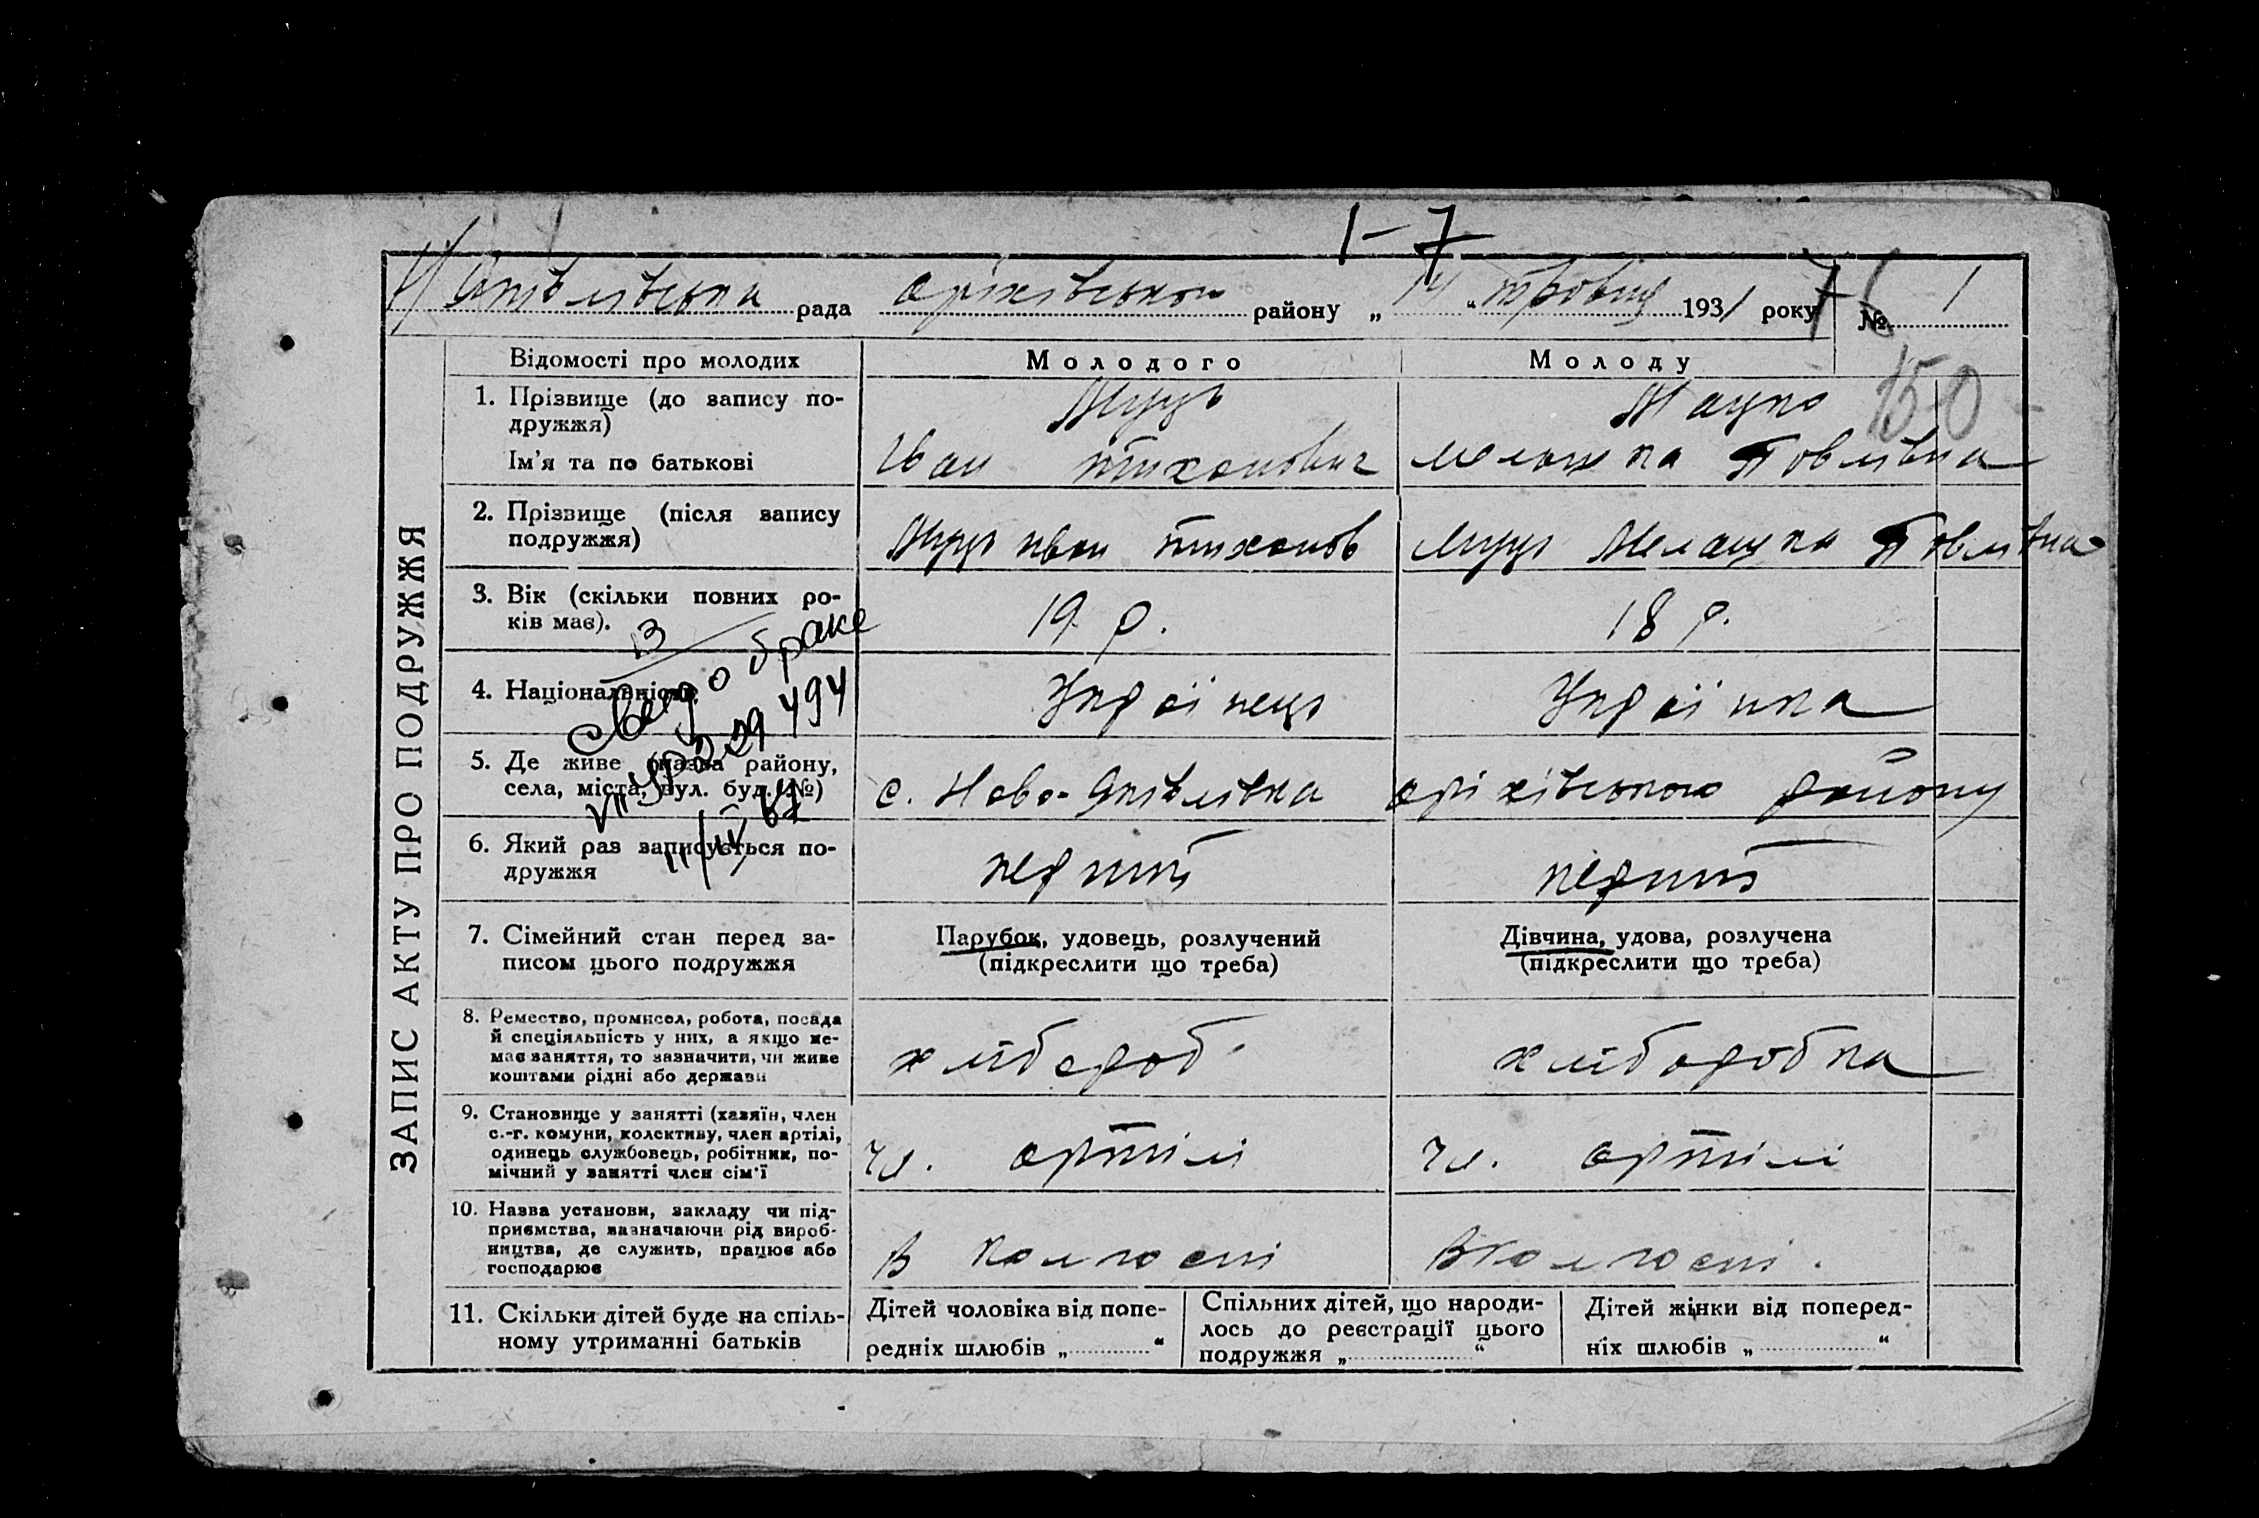 1-7
Н/Яківлівська рада Оріхівського району „14“ травня 1931 року № 1
71
150
ЗАПИС АКТУ ПРО ПОДРУЖЖЯ
Відомості про молодих Молодого Молоду
1. Прізвище (до запису по-
дружжя)
Мацко
Ім'я та по батькові Іван Тихонович Мелашка Павлівна
2. Прізвище (після запису
подружжя)
Іван Тихонов Мелашка Павлівна
3. Вік (скільки повних ро-
ків має).
19 р. 18 р.
4. Національність Українець Українка
5. Де живе (назва району,
села, міста, вул. буд. №)
с. Ново-Яківлівка Оріхівського району
6. Який раз записується по-
дружжя
перший перший
7. Сімейний стан перед за-
писом цього подружжя
Парубок, удовець, розлучений
(підкреслити що треба)
Дівчина, удова, розлучена
(підкреслити що треба)
8. Ремество, промисел, робота, посада
й спеціяльність у них, а якщо не-
має заняття, то зазначити, чи живе
коштами рідні або держави
хлібороб хліборобка
9. Становище у занятті (хазяїн, член
с.-г. комуни, колективу, член артілі,
одинець службовець, робітник, по-
мічний у занятті член сім'ї
чл. артілі чл. артілі
10. Назва установи, закладу чи під-
приємства, зазначаючи рід вироб-
ництва, де служить, працює або
господарює
в колгоспі в колгоспі.
11. Скільки дітей буде на спіль-
ному утриманні батьків
Дітей чоловіка від попе-
редніх шлюбів „ “
Спільних дітей, що народи-
лось до реєстрації цього
подружжя „ “
Дітей жінки від поперед-
ніх шлюбів „ “
13
свид о браке
494